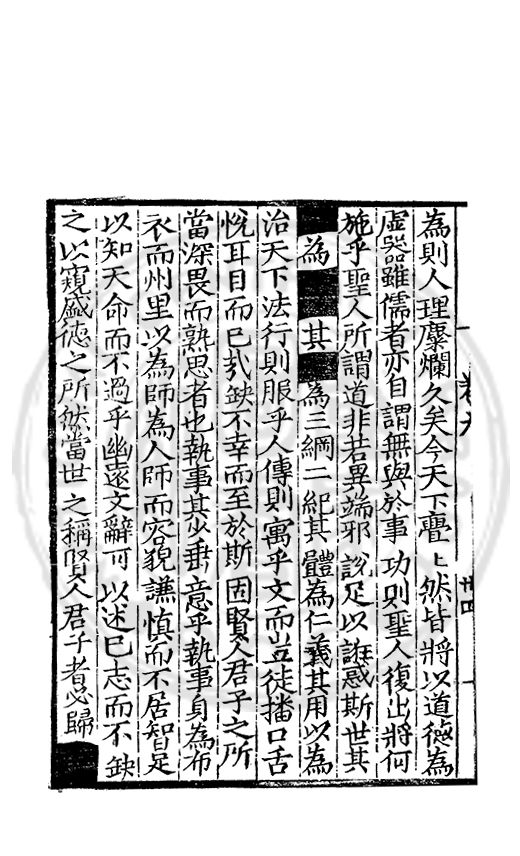 為則人理糜爛久矣今天下亹上然皆將以道德為
虛器雖儒者亦自謂無與於事功則聖人復出將何
施乎聖人所謂道非若異端邪說足以誑惑斯世其
為其為三綱二紀其體為仁義其用以為
治天下法行則服乎人傳則寓乎文而豈徒播口舌
悅耳目而已㢤缺不幸而至於斯因賢人君子之所
當深畏而熟思者也執事其少垂意乎執事身為布
衣而州里以為師為人師而容貌謙慎而不居智足
以知天命而不過乎幽遠文辭可以述已志而不缺
之以窺盛德之所然當世之稱賢人君子者必歸